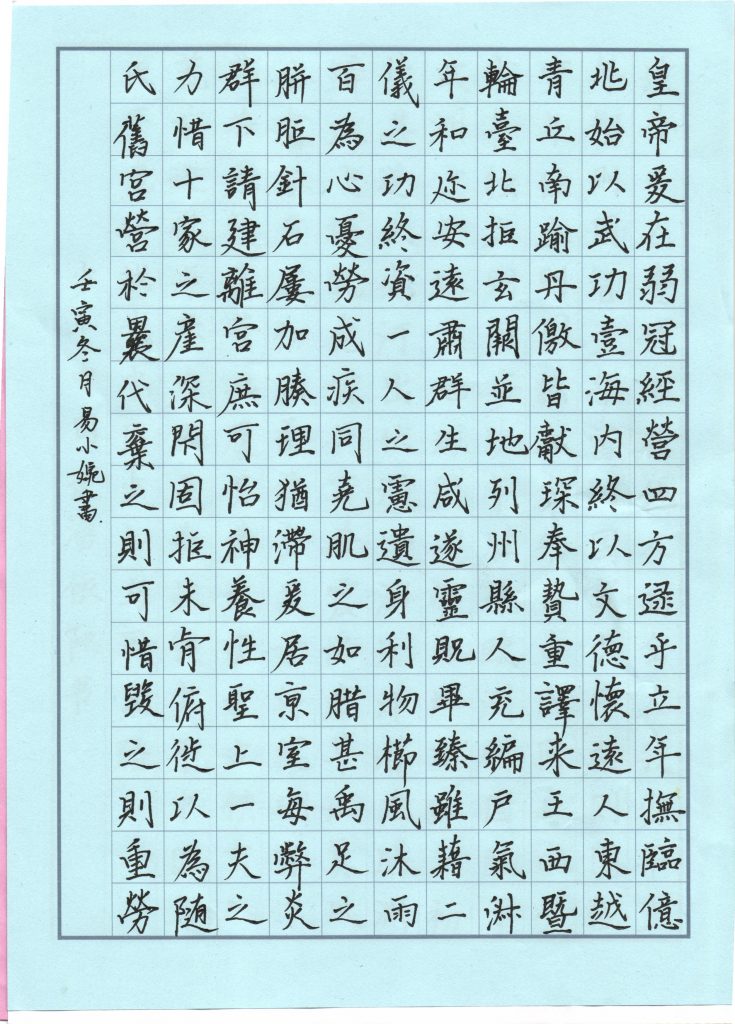 皇帝爰在弱冠經營四方逮乎立年撫臨億
兆始以武功壹海内終以文德懷遠人東越
青丘南踰丹儌皆獻琛奉贄重譯来王西暨
輪臺北拒玄闕並地列州縣人充編戶氣淑
年和迩安遠肅群生咸遂靈貺畢臻雖藉二
儀之功終資一人之慮遺身利物櫛風沐雨
百為心憂勞成疾同堯肌之如腊甚禹足之
胼胝針石屢加腠理猶滯爰居京室每弊炎
群下請建離宮庶可怡神養性聖上一夫之
力惜十家之產深閇固拒未肯俯從以為随
氏舊宮營於曩代棄之則可惜毀之則重勞
壬寅冬月易小婉書